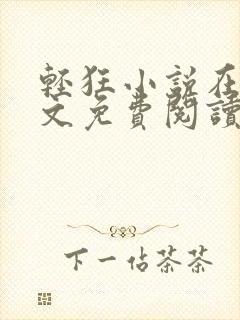 輕狂小說在
文免費閱讀
下一佔茶茶